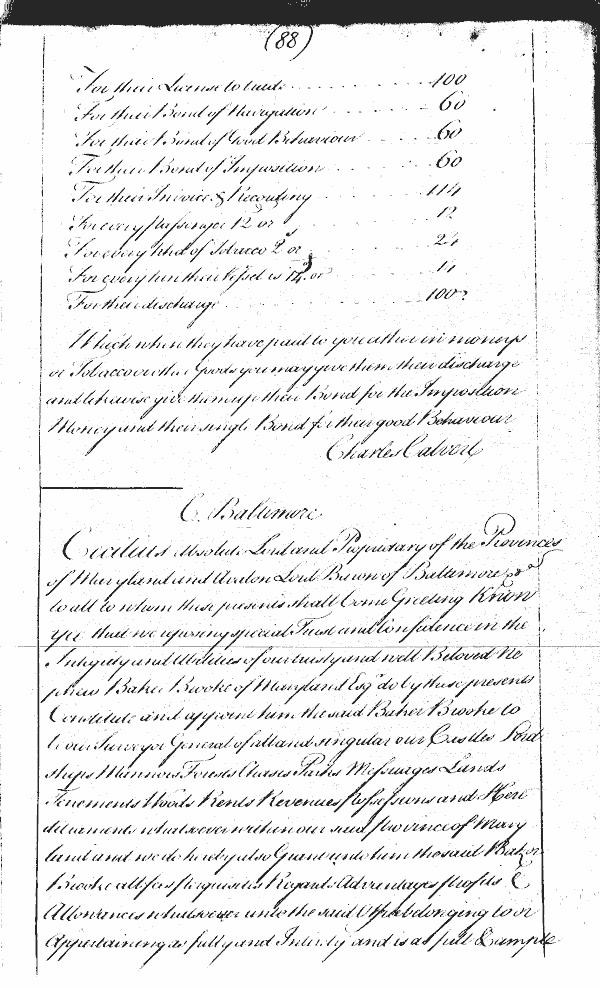 (88)
For their License to trade 100
For their Bond of Navigation 60
For their Bond of Good Behaviour 60
For their Bond of Imposition 60
For their Invoice & Recording 114
For every passenger 12 or 12
For every hhd of Tobacco 2s or 24
For every tun their Vessel is or 14
For their discharge 100
Which when they have paid to you either in moneys
or Tobacco or other Goods you may give them their discharge
and likewise give them up their Bond for the Imposition
Money and their single Bond for their good Behaviour
Charles Calvert
C. Baltimore
Cecilius absolute Lord and Proprietary of the Provinces
of Maryland and Avalon Lord Baron of Baltimore &ca
to all to whom these presents shall Come Greeting Know
Yee that we reposing special Trust and Confidence in the
Integrity and Abilities of our trusty and well Beloved Ne
phew Baker Brooke of Maryland Esqr do by these presents
Constitute and appoint him the said Baker Brooke to
be our Surveyor General of all and singular our Castles Lord
ships Mannors Forests Chases Parks Messuages Lands
Tenements Woods Rents Revenues possessions and Here
ditaments whatsoever within our said province of Mary
land and we do hereby also Grant unto him the said Baker
Brooke all fees perquisites Regards Advantages profits &
Allowances whatsoever unto the said Office belonging to or
Appertaining as fully and Intirely and is as full & ample